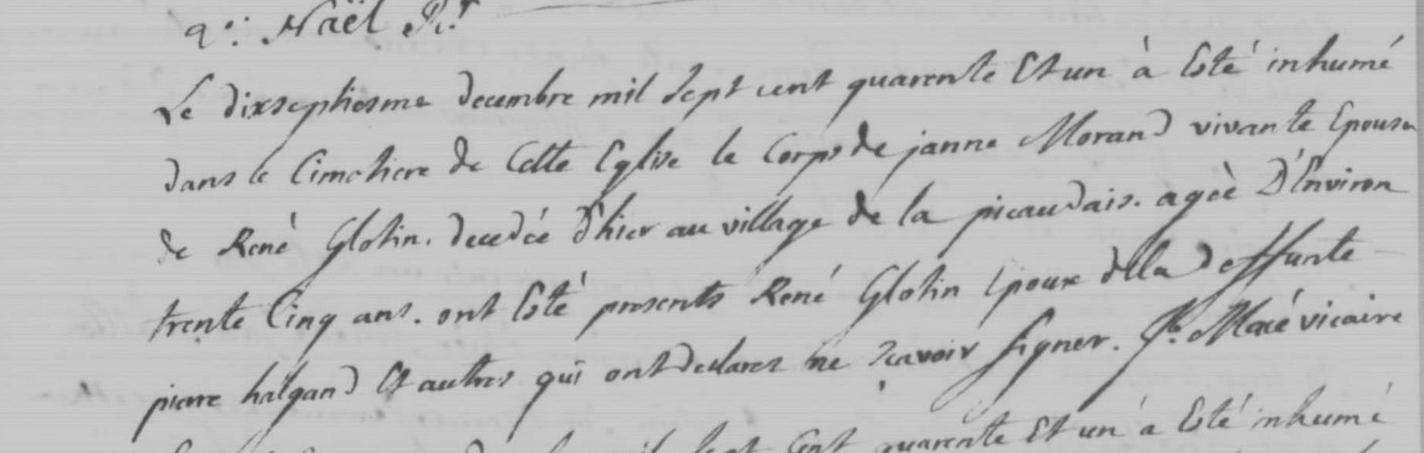 Noël Rr
Le dixseptiesme decembre mil sept cent quarente Et un à Esté inhumé
dans le Cimetiere de Cette Eglise le Corps de janne Morand vivante Epouse
de René Glotin. decedée d'hier au village de la picaudais. agée D'Environ
trente Cinq ans. ont Esté presents René Glotin Epoux de la deffunte
pierre halgand Et autres qui ont declarez ne scavoir signer. Macé vicaire
sept Cent quarente Et un à Esté inhumé